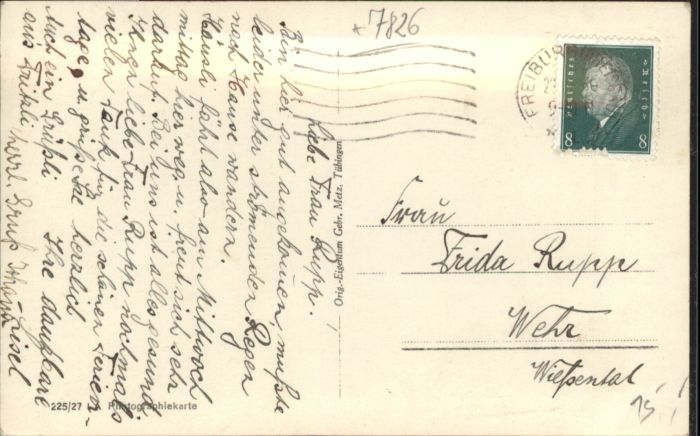 *7826
FREIBURG
Deutsches Reich
8 8
Liebe Frau Rupp.
Bin hier gut angekommen, mußte
leider unter strömenden Regen
nach Hause wandern.
Häusli fährt also am Mittwoch
mittag hier weg u. freut sich sehr
darauf. Bei uns ist alles gesund.
Ihnen liebe Frau Rupp nochmals
vielen Dank für die schönen Ferien-
tage, u. grüße Sie herzlich
Ihre dankbare
Liesel
Auch ein Grüßli
aus
herzl. Gruß
Orig.-Eigentum Gebr. Metz, Tübingen
Frau
Frida Rupp
Wehr
Wiesental
225/27 Photographiekarte
15,